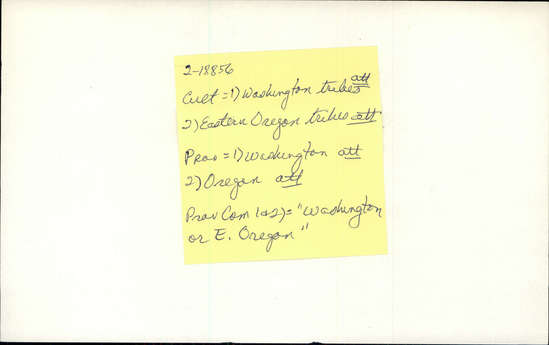 2-18856
Cult = 1) Washington tribes att
2) Eastern Oregon tribes att
Prov = 1) Washington att
2) Oregon att
Prov Com 1&2) = "Washington
or E. Oregon"